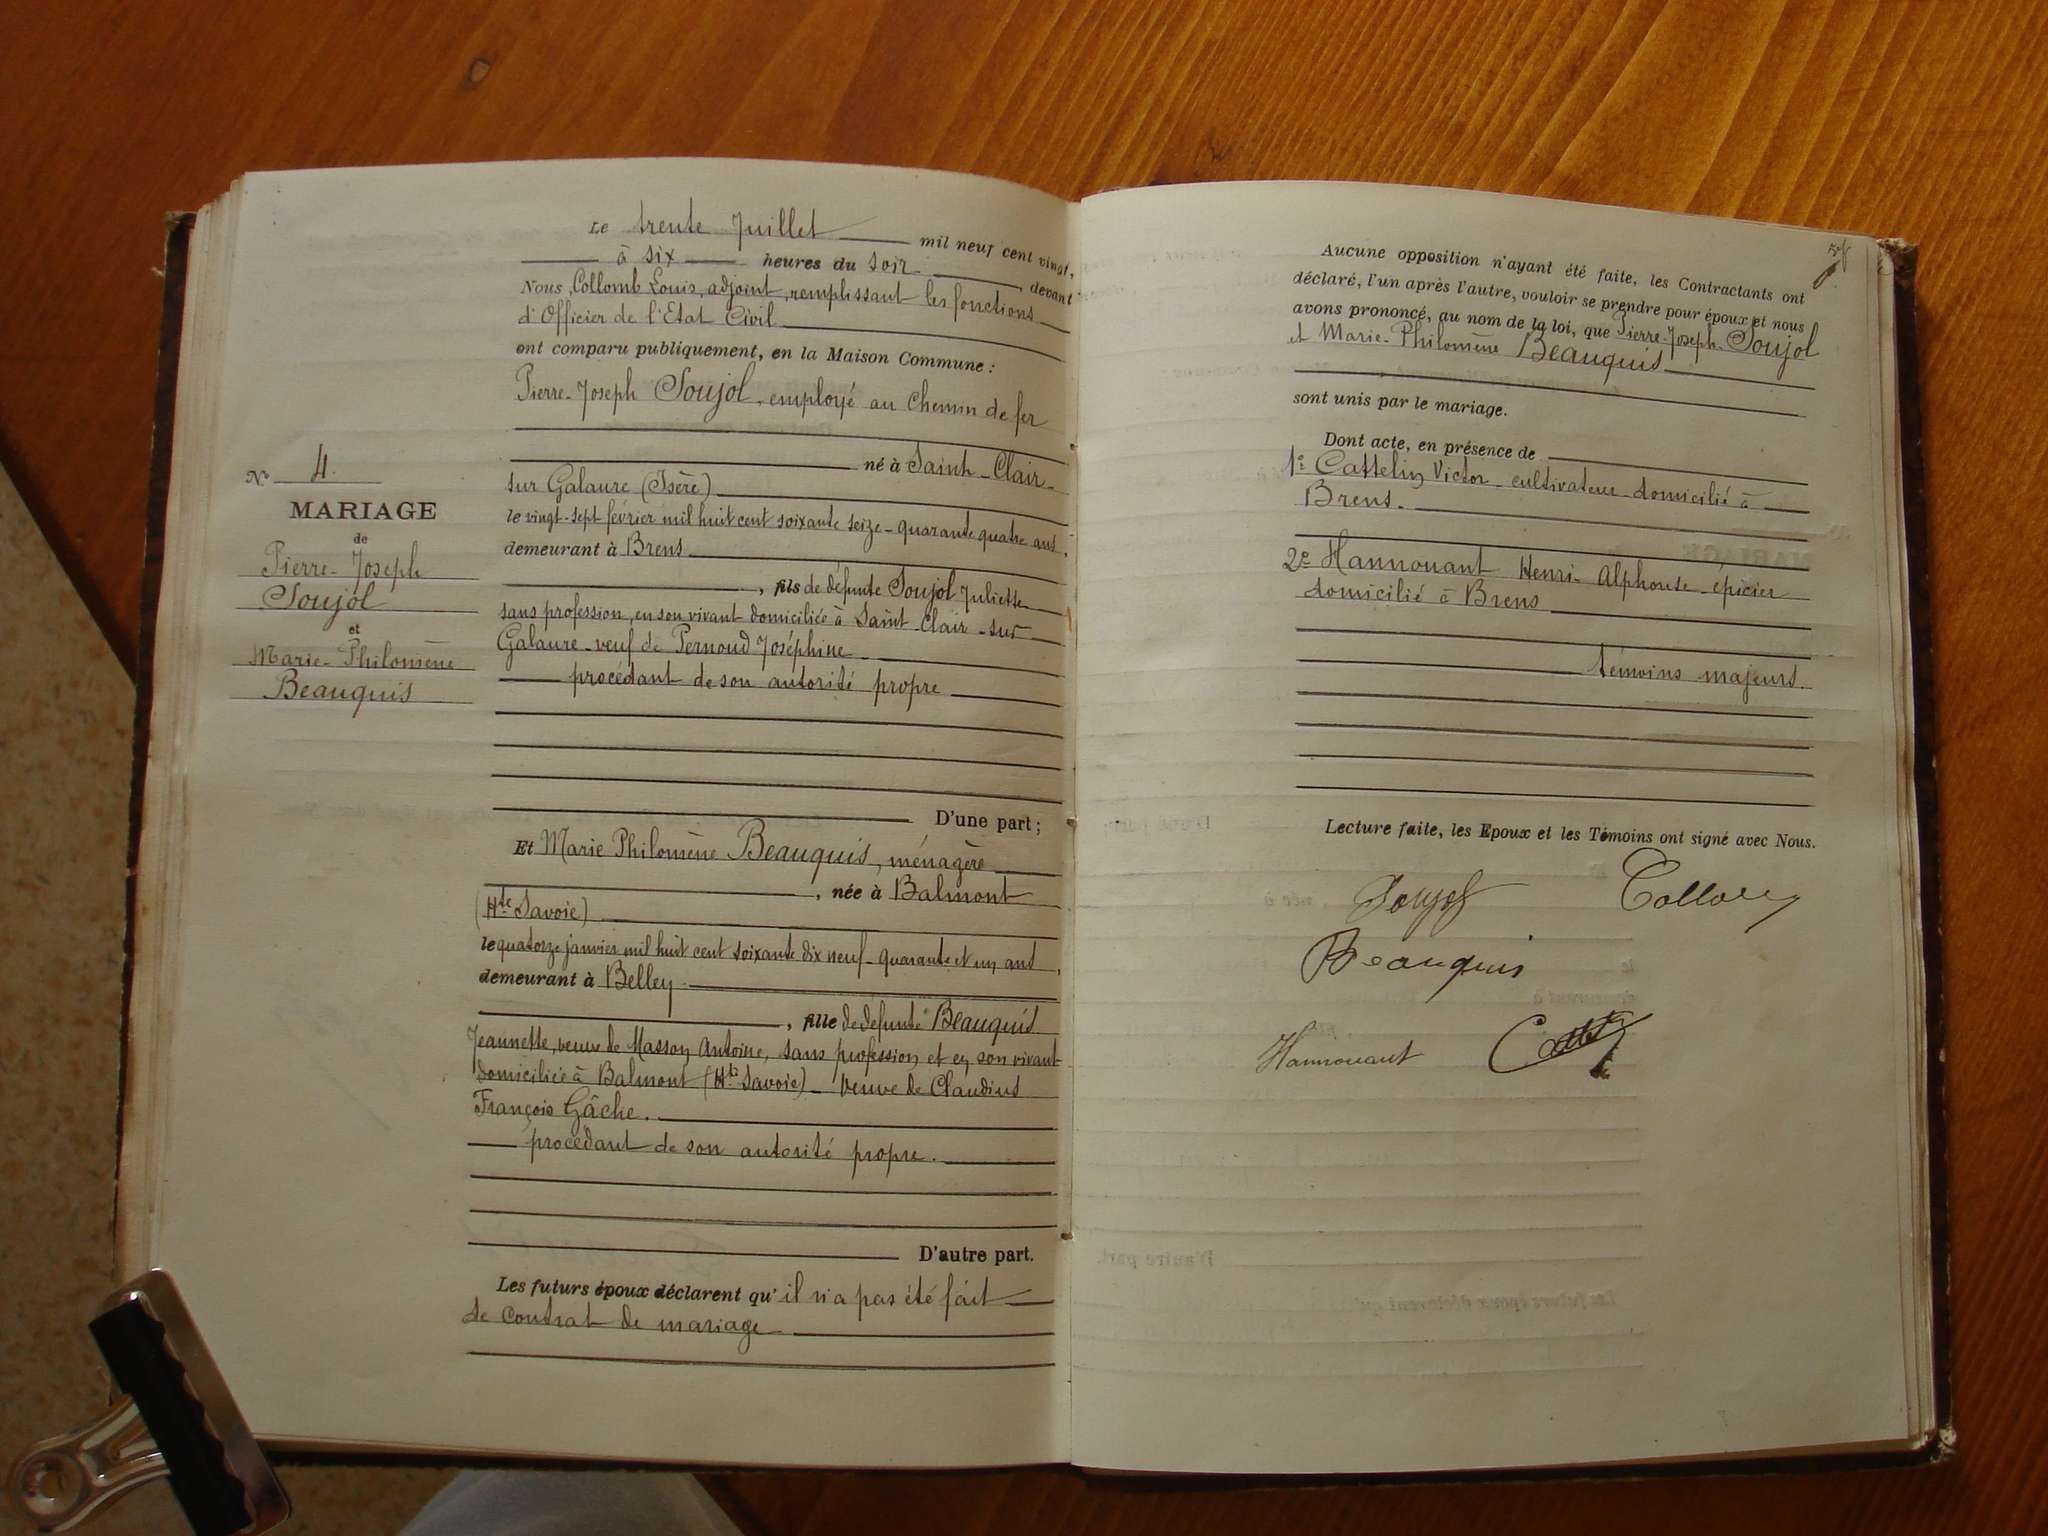 Le trente Juillet mil neuf cent vingt,
à six heures du soir, devant
Nous, Collomb Louis, adjoint, remplissant les fonctions
d'Officier de l'Etat Civil
ont comparu publiquement, en la Maison Commune :
Pierre-Joseph Soujol, employé au Chemin de fer
né à Saint-Clair-
sur Galaure (Isère)
le vingt-sept février mil huit cent soixante seize - quarante quatre ans,
demeurant à Brens
, fils de défunte Soujol Juliette
sans profession, en son vivant domiciliée à Saint-Clair-sur
Galaure - veuf de Pernoud Joséphine
procédant de son autorité propre
D'une part ;
Et Marie Philomène Beauquis, ménagère
, née à Balmont
(Hte Savoie)
le quatorze janvier mil huit cent soixante dix neuf - quarante et un ans,
demeurant à Belley
, fille de défunte Beauquis
Jeannette, veuve de Masson Antoine, sans profession et en son vivant
domiciliée à Balmont (Hte Savoie) - Veuve de Claudius
François Gâche.
procédant de son autorité propre.
D'autre part.
Les futurs époux déclarent qu'il n'a pas été fait
de contrat de mariage
N° 4.
MARIAGE
de
Pierre-Joseph
Soujol
et
Marie-Philomène
Beauquis
Aucune opposition n'ayant été faite, les Contractants ont
déclaré, l'un après l'autre, vouloir se prendre pour époux et nous
avons prononcé, au nom de la loi, que Pierre-Joseph Soujol
et Marie-Philomène Beauquis
sont unis par le mariage.
Dont acte, en présence de
1° Cattelin Victor - cultivateur domicilié à
Brens.
2e Hannouant Henri-Alphonse - épicier
domicilié à Brens
témoins majeurs.
Lecture faite, les Epoux et les Témoins ont signé avec Nous.
Soujol
Collomb
Beauquis
Hannouant